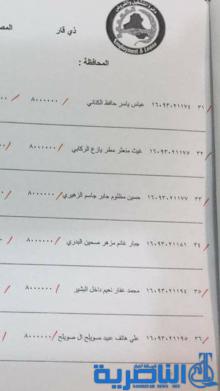 ذي قار
المص
Employment & Loans
المحافظة :
٣١ ١٦٠٩٣٠٢١١٧٤ عباس ياسر حافظ الكناني / ٨٠٠٠٠٠٠
٣٢ ١٦٠٩٣٠٢١١٧٥ غيث منعثر مطر يازع الركابي / ٨٠٠٠٠٠٠
٣٣ ١٦٠٩٣٠٢١١٧٧ حسين مظلوم جابر جاسم الزهيري / ٨٠٠٠٠٠٠
٣٤ جبار غانم مزهر صحين البدري / ٨٠٠٠٠٠٠
٣٥ ١٦٠٩٣٠٢١١٩٤ محمد غفار نعيم داخل البشير / ٨٠٠٠٠٠٠
٣٦ ١٦٠٩٣٠٢١١٩٥ علي هاتف عبيد صويلح ال صويلح / ٨٠٠٠٠٠٠
الناصرية